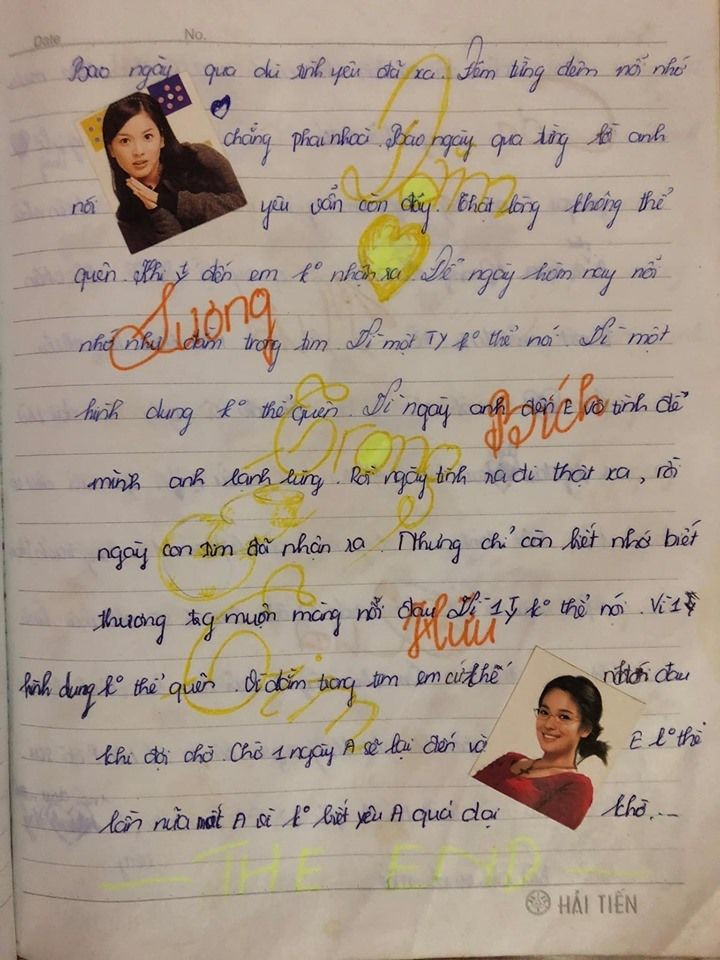 Date No.
Bao ngày qua dù tình yêu đã xa. Đêm từng đêm nỗi nhớ
chẳng phai nhoà. Bao ngày qua từng lời anh
nói yêu vẫn còn đấy. Thật lòng không thể
quên. Khi ty đến em ko nhận ra. Để ngày hôm nay nỗi
nhớ như dằm trong tim. Vì một TY ko thể nói. Vì một
hình dung ko thể quên. Vì ngày anh đến E vô tình để
mình anh lạnh lùng. Rồi ngày tình ra đi thật xa, rồi
ngày con tim đã nhận ra. Nhưng chỉ còn biết nhớ biết
thương tg muộn màng nỗi đau. Vì 1 Ty ko thể nói. Vì 1
hình dung ko thể quên. Vì dằm trong tim em cứ thế nhói đau
khi đợi chờ. Chờ 1 ngày A sẽ lại đến và E ko thể
lần nữa mất A vì ko biết yêu A quá dại khờ...
Dằm
Trong
Tim
Lương
Bích
Hữu
THE END
HẢI TIẾN